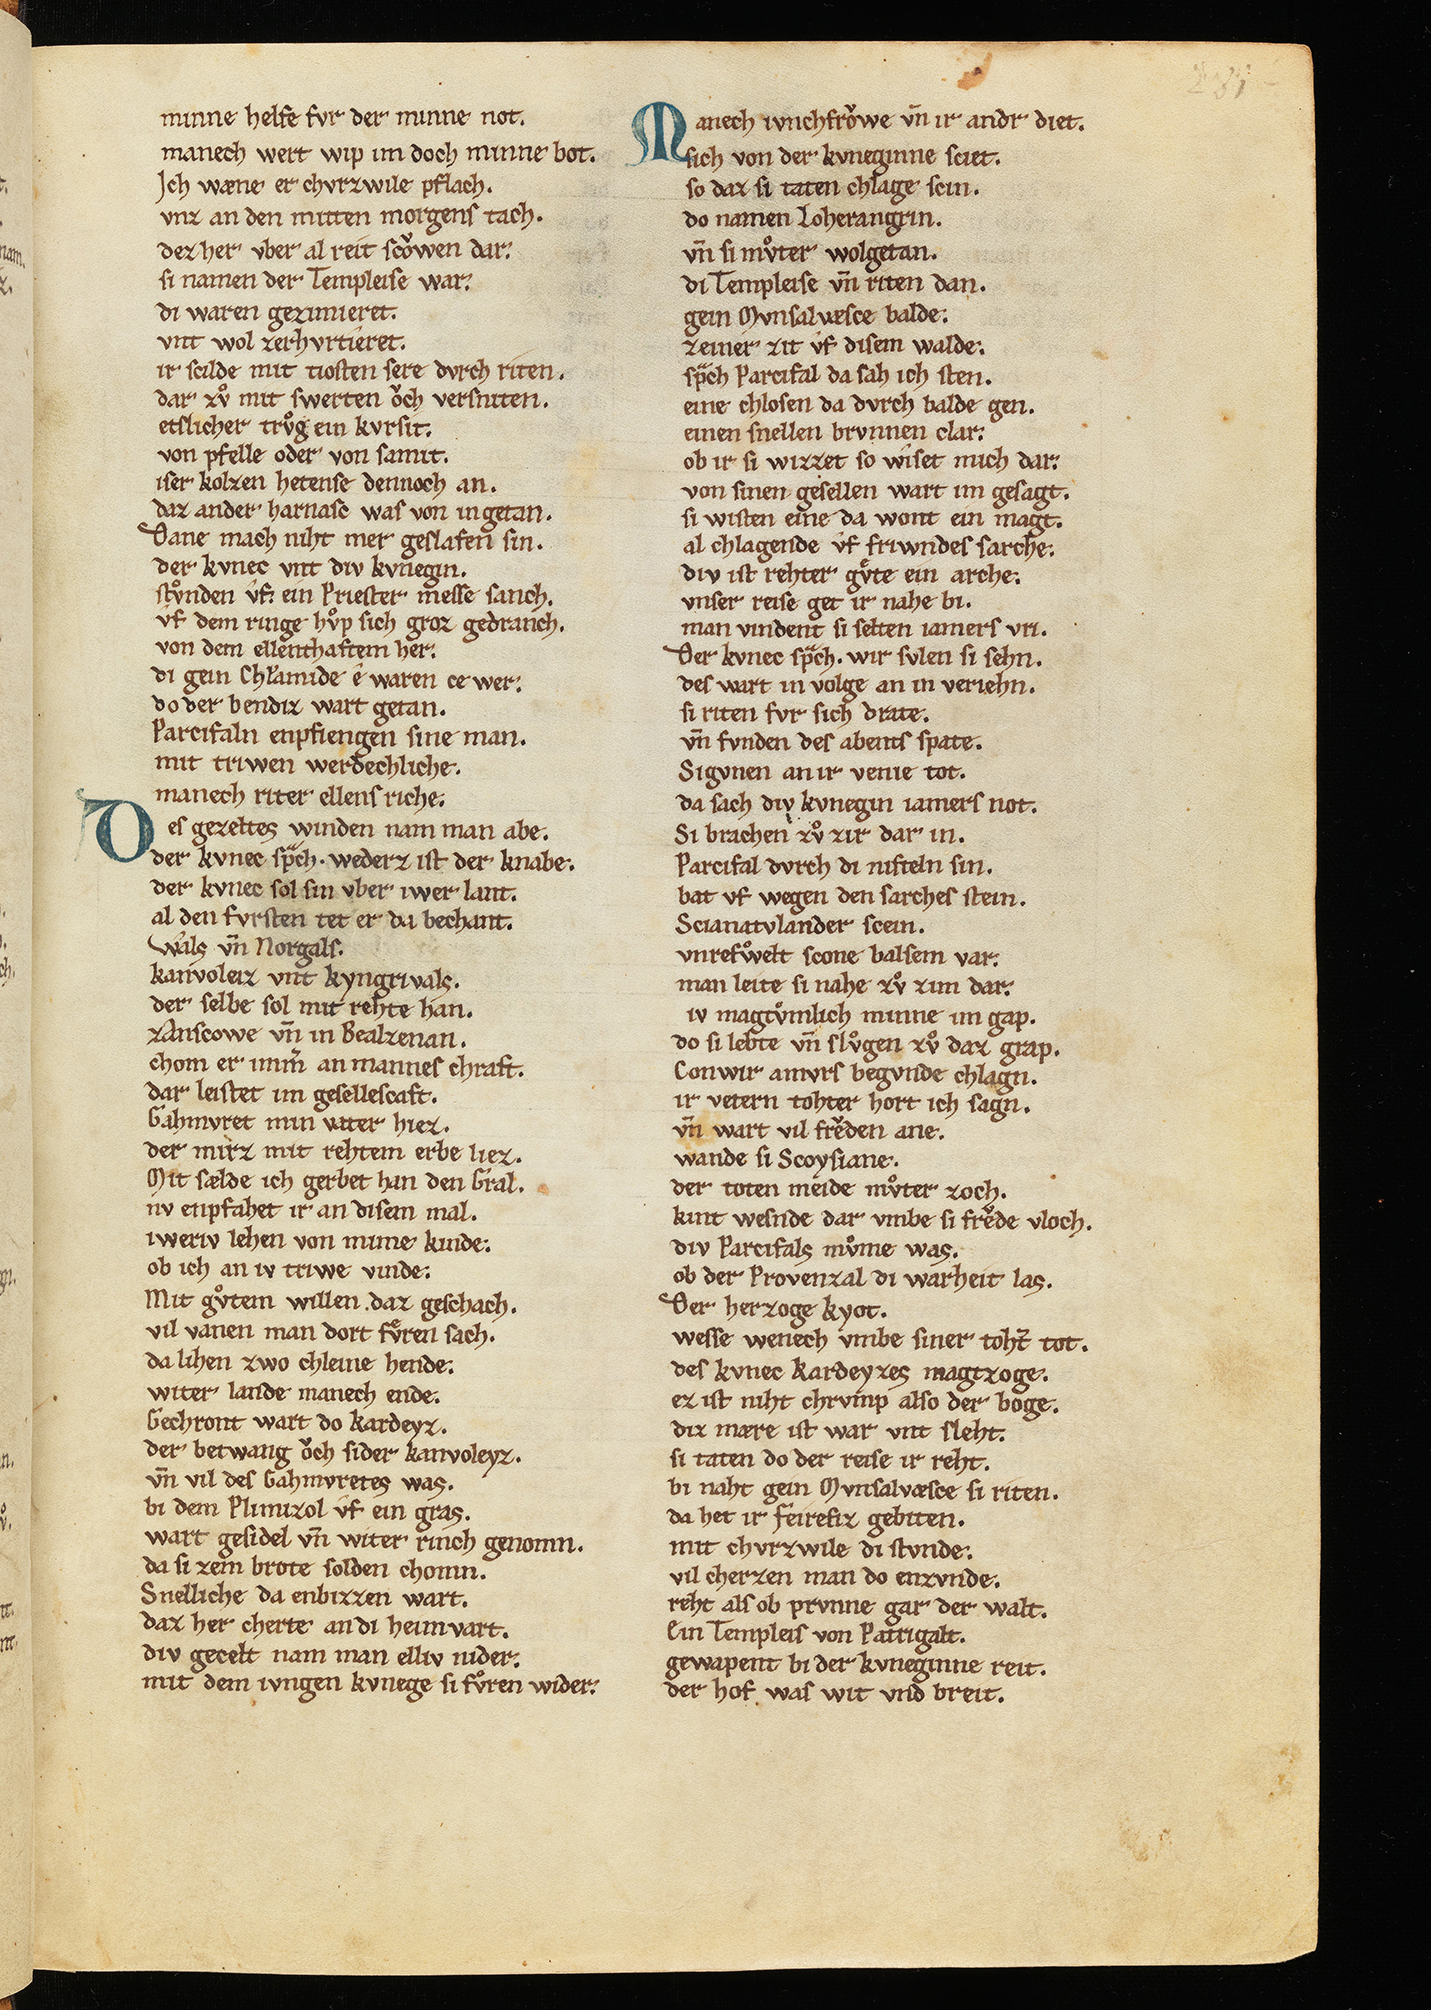 minne helfe fvr der minne not.
manech wert wip im doch minne bot.
Ich wæne er chvrzwile pflach.
vnz an den mitten morgens tach.
dez her vber al reit scoͮwen dar.
si namen der Templeise war.
di waren gezimieret.
vnt wol zerhvrtieret.
ir scilde mit tiosten sere dvrch riten.
dar zvͦ mit swerten oͮch versniten.
etslicher trvͦg ein kvrsit.
von pfelle oder von samit.
iser kolzen hetense dennoch an.
daz ander harnasc was von in getan.
Dane mach niht mer geslafen sin.
der kvnec vnt div kvnegin.
stvͦnden vf. ein Priester messe sanch.
vf dem ringe hvͦp sich groz gedranch.
von dem ellenthaftem her.
di gein Chlamide e waren ce wer.
do der bendiz wart getan.
Parcifaln enpfiengen sine man.
mit triwen werdechliche.
manech riter ellens riche.
Des gezeltes winden nam man abe.
der kvnec sp̄ch. wederz ist der knabe.
der kvnec sol sin vber iwer lant.
al den fvrsten tet er da bechant.
Wals vn̄ Norgals.
kanvoleiz vnt kyngrivals.
der selbe sol mit rehte han.
zAnscowe vn̄ in Bealzenan.
chom er imm̄ an mannes chraft.
dar leistet im gesellescaft.
Gahmvret min vater hiez.
der mirz mit rehtem erbe liez.
Mit sælde ich gerbet han den Gral.
nv enpfahet ir an disem mal.
iweriv lehen von mime kinde.
ob ich an iv triwe vinde.
Mit gvͦtem willen daz geschach.
vil vanen man dort fvͤren sach.
da lihen zwo chleine hende.
witer lande manech ende.
Gechront wart do kardeyz.
der betwang oͮch sider kanvoleyz.
vn̄ vil des Gahmvretes was.
bi dem Plimizol vf ein gras.
wart gesidel vn̄ witer rinch genomn.
da si zem brote solden chomn.
Snelliche da enbizzen wart.
daz her cherte an di heimvart.
div gecelt nam man elliv nider.
mit dem ivngen kvnege si fvͦren wider.
Manech ivnchfroͮwe vn̄ ir andr diet.
sich von der kvneginne sciet.
so daz si taten chlage scin.
do namen Loherangrin.
vn̄ si mvͦter wolgetan.
di Templeise vn̄ riten dan.
gein Mvnsalvæsce balde.
zeiner zit vf disem walde.
sp̄ch Parcifal da sah ich sten.
eine chlosen da dvrch balde gen.
einen snellen brvnnen clar.
ob ir si wizzet so wiset mich dar.
von sinen gesellen wart im gesagt.
si wisten eine da wont ein magt.
al chlagende vf friwndes sarche.
div ist rehter gvͤte ein arche.
vnser reise get ir nahe bi.
man vindent si selten iamers vri.
Der kvnec sp̄ch. wir svlen si sehn.
des wart in volge an in veriehn.
si riten fvr sich drate.
vn̄ fvnden des abents spate.
Sigvnen an ir venie tot.
da sach div kvnegin iamers not.
Si brachen zvͦ zir dar in.
Parcifal dvrch di nifteln sin.
bat vf wegen den sarches stein.
Scianatvlander scein.
vnrefvͦwelt scone balsem var.
man leite si nahe zvͦ zim dar.
iv magtvͦmlich minne im gap.
do si lebte vn̄ slvͦgen zvͦ daz grap.
Conwir amvrs begvnde chlagn.
ir vetern tohter hort ich sagn.
vn̄ wart vil freͮden ane.
wande si Scoysiane.
der toten meide mvͦter zoch.
kint wesnde dar vmbe si freͮde vloch.
div Parcifals mvͦme was.
ob der Provenzal di warheit las.
Der herzoge kyot.
wesse wenech vmbe siner toht̄ tot.
des kvnec kardeyzes magtzoge.
ez ist niht chrvmp also der boge.
diz mære ist war vnt sleht.
si taten do der reise ir reht.
bi naht gein Mvnsalvæsce si riten.
da het ir feirefiz gebiten.
mit chvrzwile di stvnde.
vil cherzen man do enzvnde.
reht als ob prvnne gar der walt.
Ein Templeis von Patrigalt.
gewapent bi der kvneginne reit.
der hof was wit vnd breit.